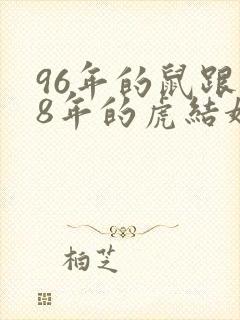 96年的鼠跟
8年的虎結
柏芝